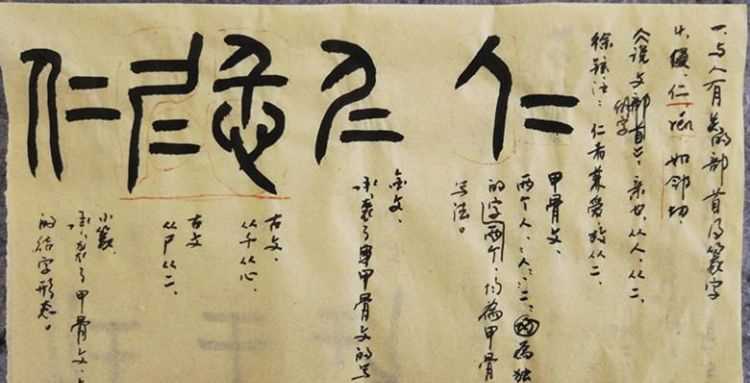 一、与人有关的部首及篆字
仁 如邻切、
亲也、从人、从二、
徐铉注：仁者兼爱、故从二、
仁
甲骨文、
两个人、人、二、为独
的字两个、均为甲骨
写法。
仁
金文、
承袭了甲骨文的写
忎
古文、
从千从心、
𡰥
古文
从尸从二、
仁
小篆、
承袭了甲骨文、
的结字形态。